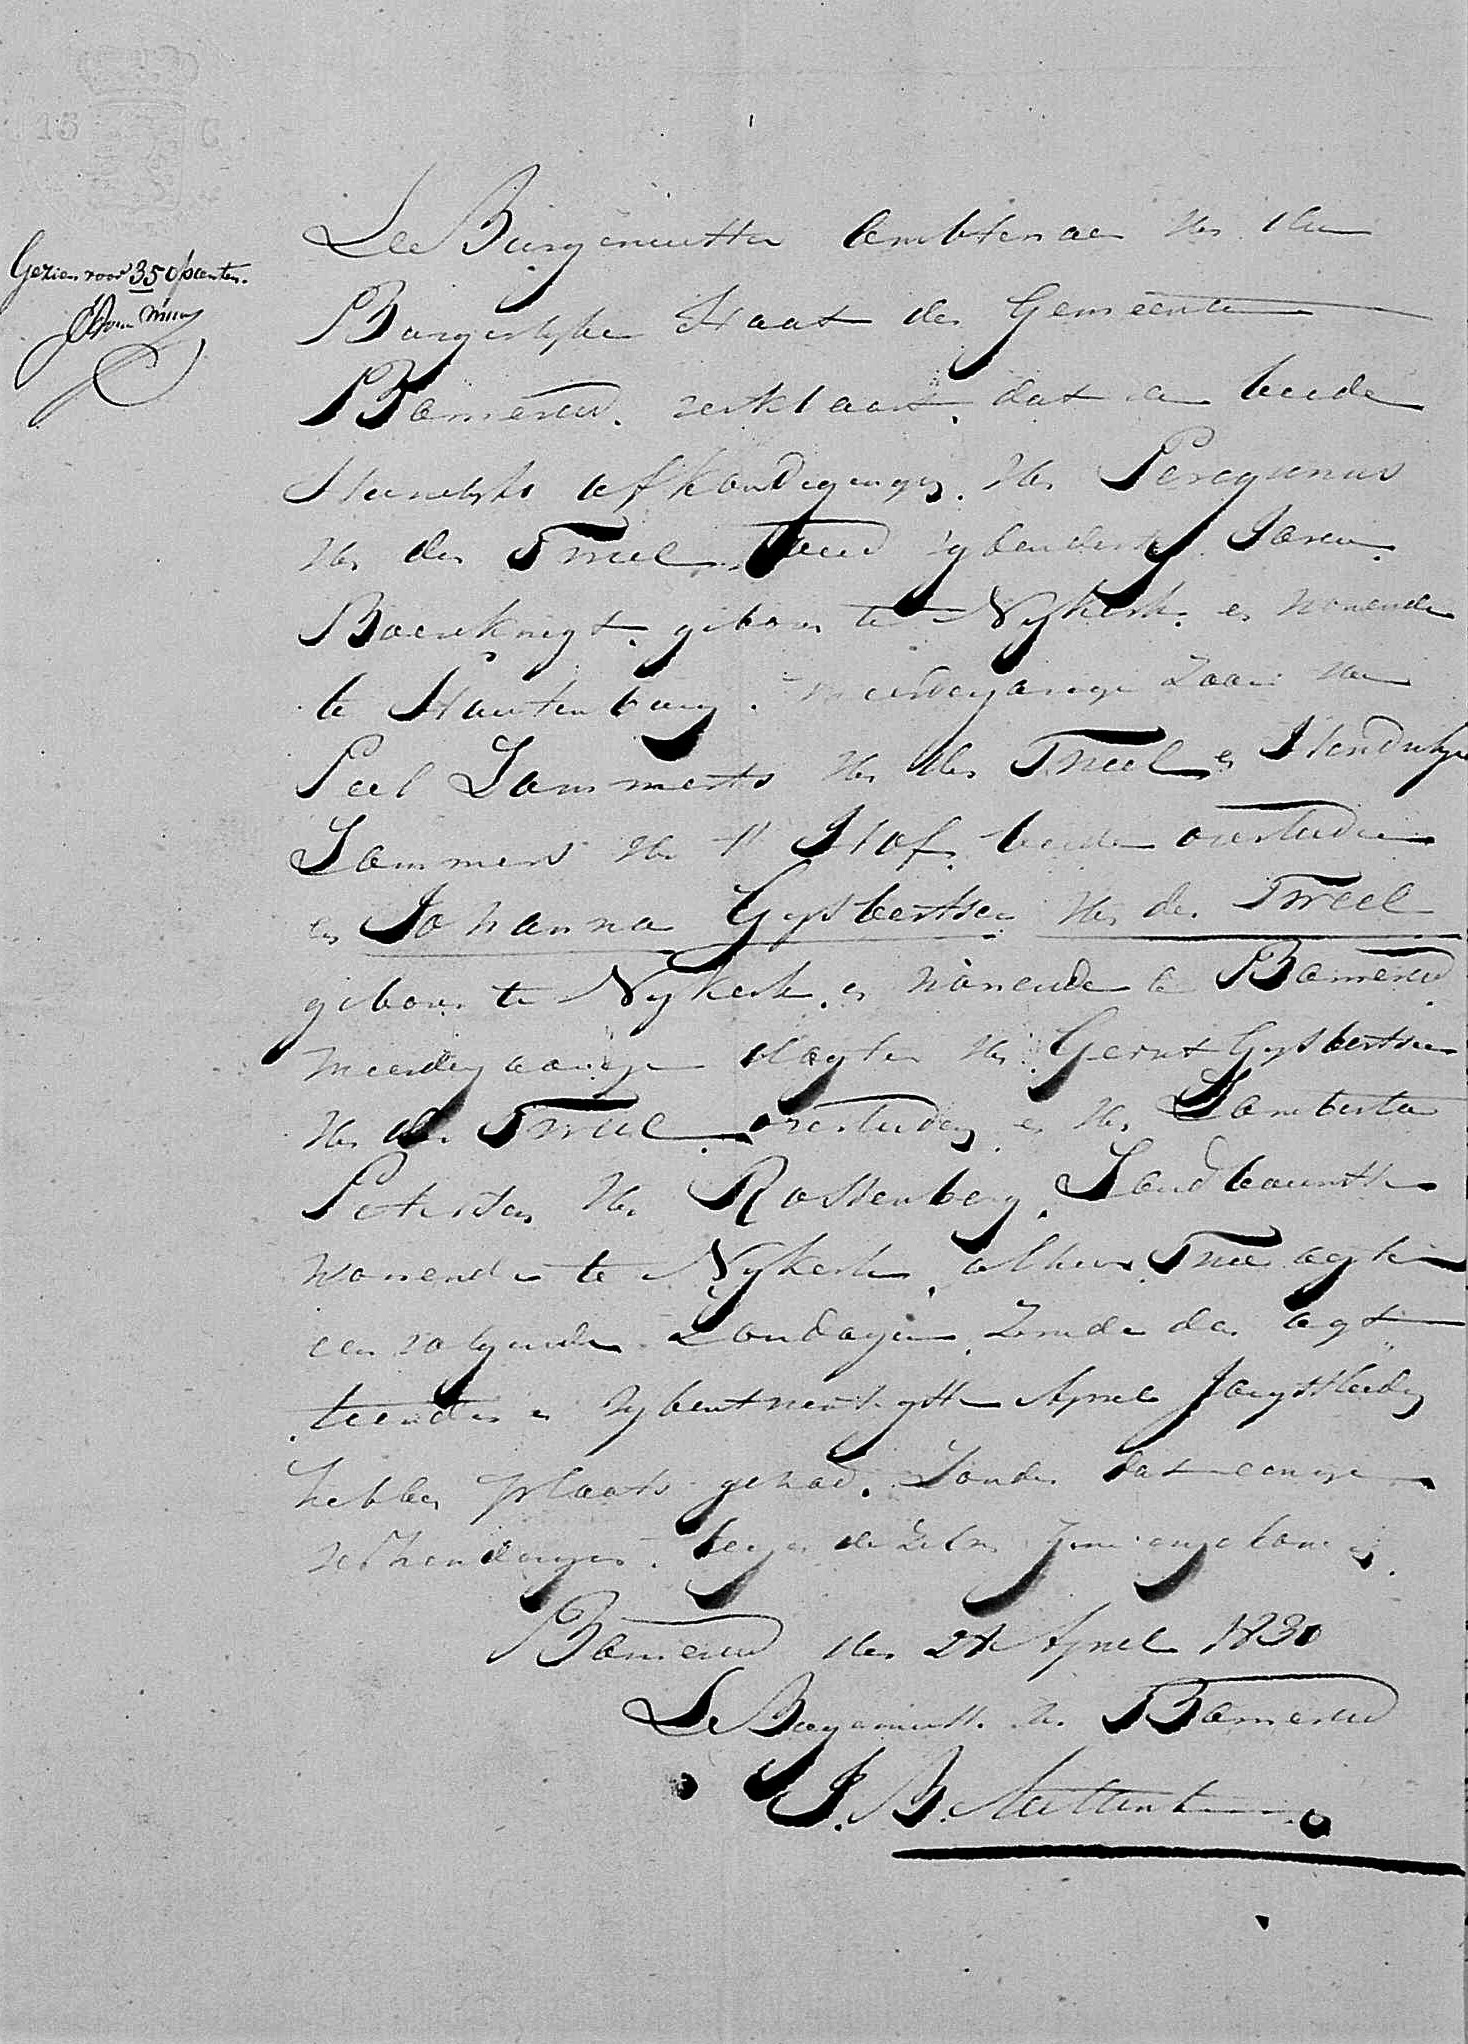 15 C
Gezien voor 35 opcenten.
De Burgemeester Ambtenaar van den
Burgerlyke Staat der Gemeente
Barneveld. verklaart, dat de beide
Huwelyks afkondigingen. van Peregrinus
van den Tweel. oud dertig Jaren.
Boereknegt. geboren te Nykerk. en wonende
te Stoutenburg. meerderjarige Zoon van
Peel Lammerts van den Tweel en Hendrikje
Lammers van 't Hof. beide overleden
en Johanna Gysbertsen van den Tweel
geboren te Nykerk. en wonende te Barneveld
meerderjarige dogter van Gerrit Gysbertsen
van den Tweel overleden en van Lambertje
Peters van Rossenberg. Landbouwster
wonende te Nykerk. alhier Twee agter
een volgende Zondagen, Zynde den agt
tienden en vyfentwentigste April Jongstleden
hebben plaats gehad. Zonder dat eenige
verhinderingen. tegen dezelve zyn ingekomen.
Barneveld den 28 April 1830
De Burgemeester van Barneveld